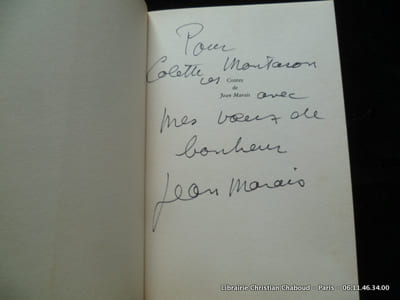 Pour
Colette Montaron
ces Contes
de
Jean Marais avec
mes vœux de
bonheur
Jean Marais
Librairie Christian Chaboud Paris 06.11.46.34.00